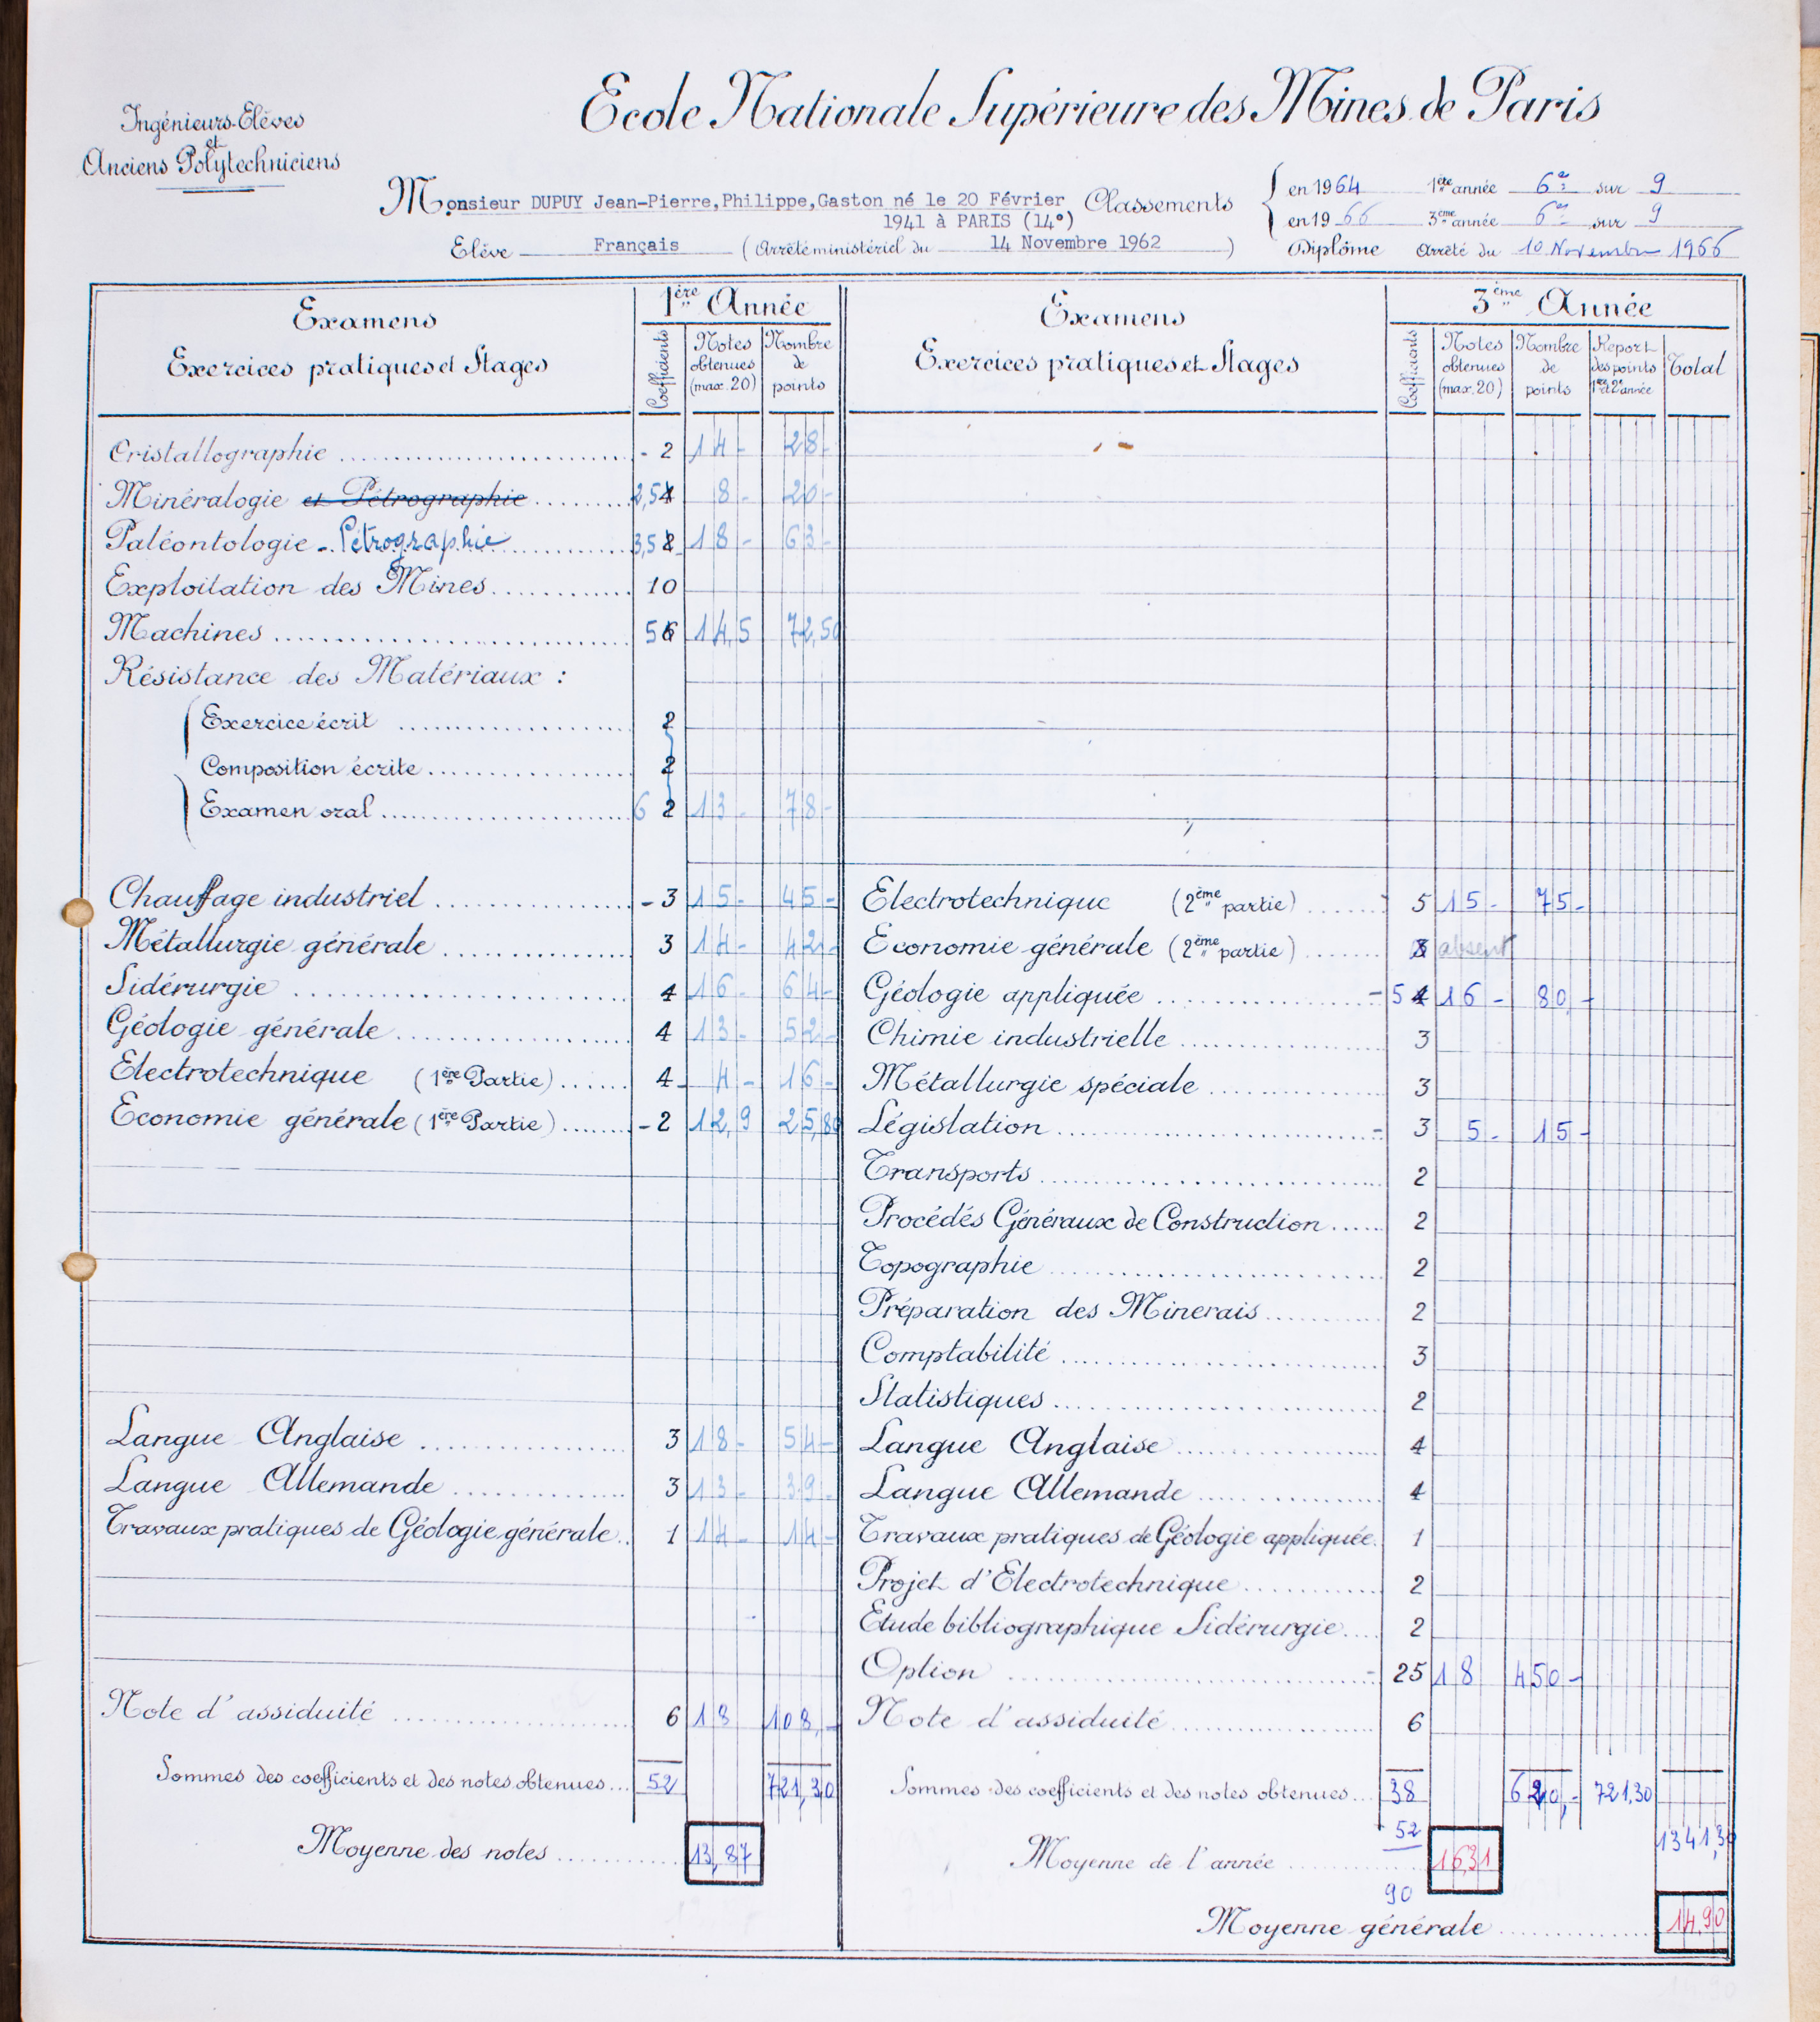 Ecole Nationale Supérieure des Mines de Paris
Ingénieurs-Elèves
et
Anciens Polytechniciens
Monsieur DUPUY Jean-Pierre,Philippe,Gaston né le 20 Février
1941 à PARIS (14°)
Elève Français (Arrêté ministériel du 14 Novembre 1962)
Classements
en 1964 1ère année 6e sur 9
en 1966 3ème année 6e sur 9
Diplôme Arrêté du 10 Novembre 1966
Examens
Exercices pratiques et Stages
1ère Année
Coefficients
Notes obtenues (max. 20)
Nombre de points
Cristallographie - 2 14 - 28 -
Minéralogie et Pétrographie 2,5 4 8 - 20 -
Paléontologie - Pétrographie 3,5 2 18 - 63 -
Exploitation des Mines 10
Machines 5 6 14,5 72,50
Résistance des Matériaux :
Exercice écrit 2
Composition écrite 2
Examen oral 6 2 13 - 78 -
Chauffage industriel - 3 15 - 45 -
Métallurgie générale 3 14 - 42 -
Sidérurgie 4 16 - 64 -
Géologie générale 4 13 - 52 -
Electrotechnique (1ère Partie) 4 4 - 16 -
Economie générale (1ère Partie) - 2 12,9 25,80
Langue Anglaise 3 18 - 54 -
Langue Allemande 3 13 - 39 -
Travaux pratiques de Géologie générale 1 14 - 14 -
Note d'assiduité 6 18 108, -
Sommes des coefficients et des notes obtenues 52 721,30
Moyenne des notes 13,87
Examens
Exercices pratiques et Stages
3ème Année
Coefficients
Notes obtenues (max. 20)
Nombre de points
Report des points 1ère et 2e année
Total
Electrotechnique (2ème partie) 5 15 - 75 -
Economie générale (2ème partie) absent
Géologie appliquée - 5 4 16 - 80, -
Chimie industrielle 3
Métallurgie spéciale 3
Législation - 3 5 - 15 -
Transports 2
Procédés Généraux de Construction 2
Topographie 2
Préparation des Minerais 2
Comptabilité 3
Statistiques 2
Langue Anglaise 4
Langue Allemande 4
Travaux pratiques de Géologie appliquée 1
Projet d'Electrotechnique 2
Etude bibliographique Sidérurgie 2
Option - 25 18 450 -
Note d'assiduité 6
Sommes des coefficients et des notes obtenues 38 620, - 721,30
52 1341,30
Moyenne de l'année 16,31
90
Moyenne générale 14,90